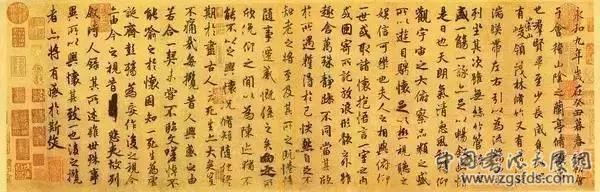 永和九年歲在癸丑暮春之初會
于會稽山陰之蘭亭脩稧事
也羣賢畢至少長咸集此地
有崇山峻領茂林脩竹又有清流激
湍暎帶左右引以為流觴曲水
列坐其次雖無絲竹管弦之
盛一觴一詠亦足以暢敘幽情
是日也天朗氣清惠風和暢仰
觀宇宙之大俯察品類之盛
所以遊目騁懷足以極視聽之
娛信可樂也夫人之相與俯仰
一世或取諸懷抱悟言一室之內
或因寄所託放浪形骸之外雖
趣舍萬殊靜躁不同當其欣
於所遇蹔得於己怏然自足不
知老之將至及其所之既惓情
隨事遷感慨係之矣向之所
欣俛仰之間以為陳跡猶不
能不以之興懷況脩短隨化終
期於盡古人云死生亦大矣豈
不痛哉每攬昔人興感之由
若合一契未嘗不臨文嗟悼不
能喻之於懷固知一死生為虛
誕齊彭殤為妄作後之視今
亦由今之視昔悲夫故列
敘時人錄其所述雖世殊事
異所以興懷其致一也後之攬
者亦將有感於斯文